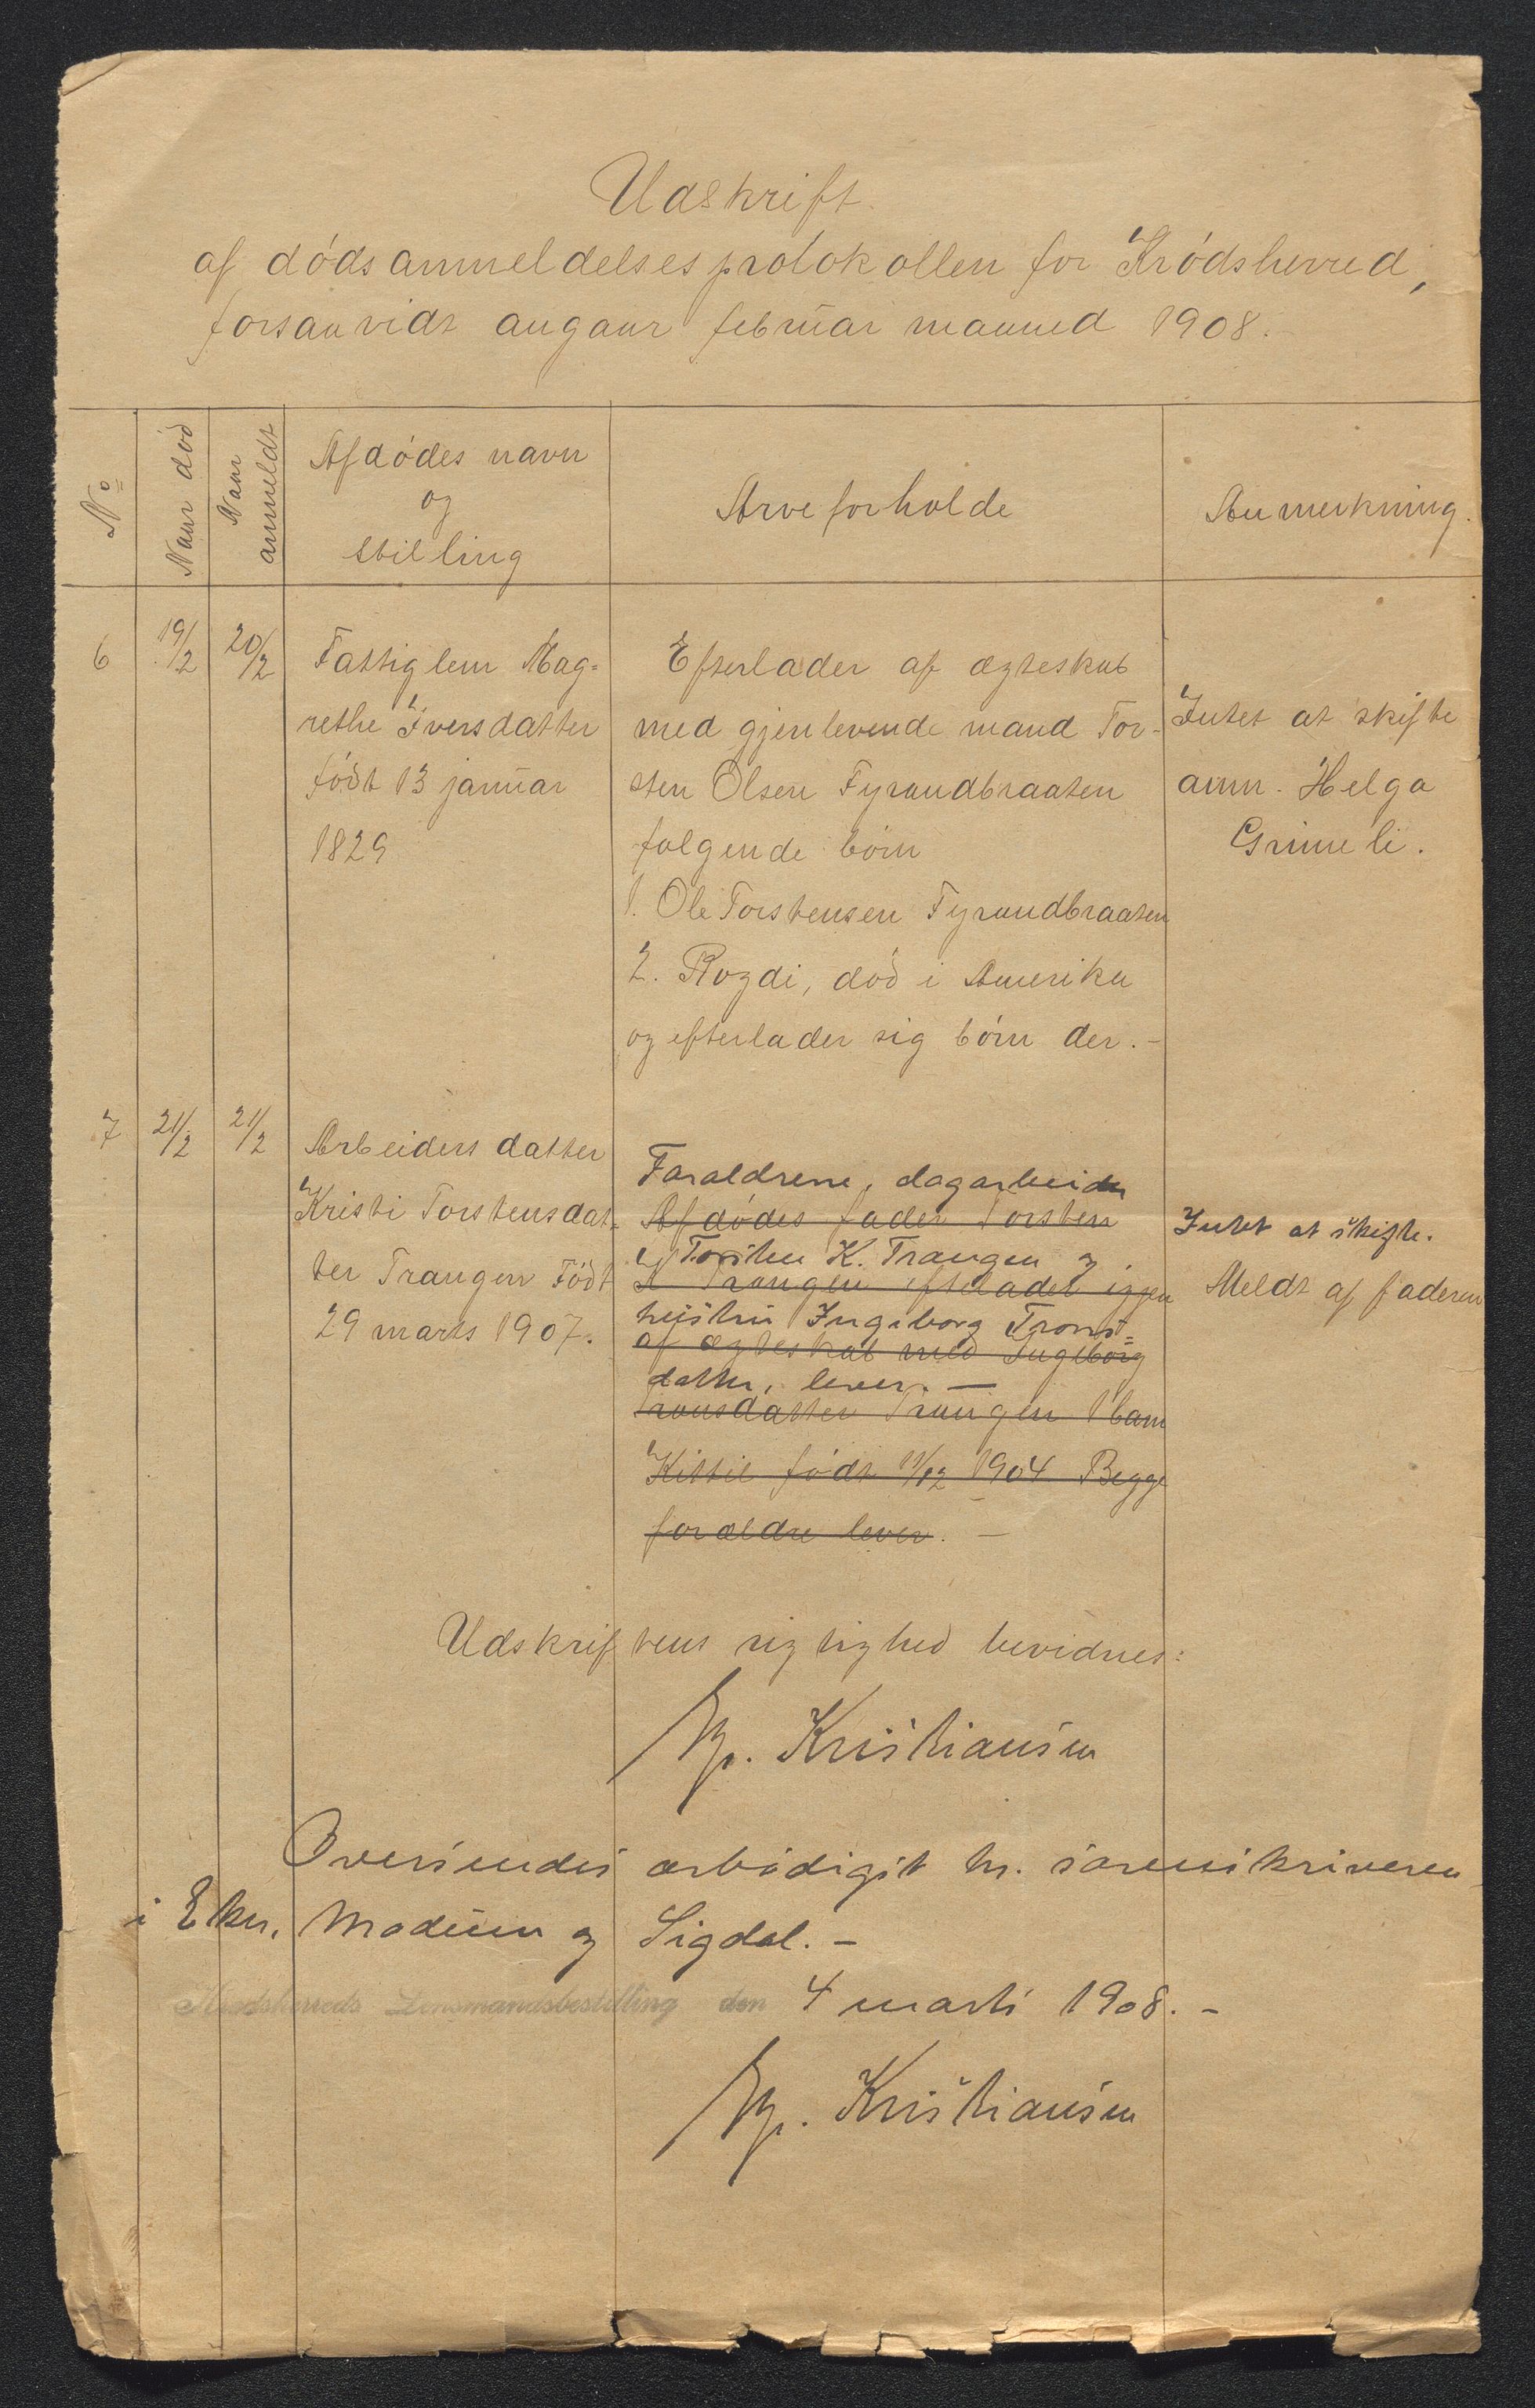 Udskrift
af dødsanmeldelsesprotokollen for Krødsherred,
forsaavidt angaar februar maaned 1908.
No
Naar død
Naar anmeldt
Afdødes navn
og
stilling
Arveforholde
Anmerkning.
6
19/2
20/2
Fattiglem Mag-
rethe Iversdatter
født 13 januar
1829
Efterlader af ægteskab
med gjenlevende mand Tor-
sten Olsen Fyrandbraaten
følgende børn
1. Ole Torstensen Fyrandbraaten
2. Rogdi, død i Amerika
og efterlader sig børn der.-
Intet at skifte
anm. Helga
Grimeli.
7
21/2
21/2
Arbeiders datter
Kristi Torstensdat-
ter Trangen Født
29 marts 1907.
Foraldrene, dagarbeider
Afdødes fader Torsten
Torsten K. Trangen og
K Trangen efterlader igjen
hustru Ingeborg Tronds-
af ægteskab med Ingeborg
datter, lever. —
Tronsdatter Trangen 1 barn
Kittil født 11/12 1904 Begge
forældre lever. —
Intet at skifte.
Meldt af faderen
Udskriftens rigtighed bevidnes:
Kristiansen
Oversendes ærbødigst hr. sorenskriveren
i Eker, Modum og Sigdal. -
Krødsherreds Lensmandsbestilling den 4 marts 1908. -
Kristiansen